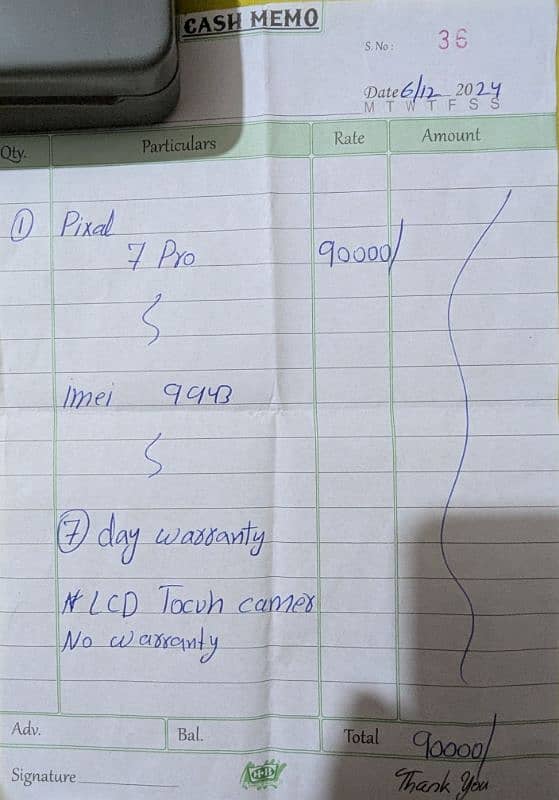 CASH MEMO
S. No: 36
Date 6/12 2024
M T W T F S S
Qty. Particulars Rate Amount
① Pixal
7 Pro 90000/
imei 9943
⑦ day warranty
LCD Tocuh camer
No warranty
Adv. Bal. Total 90000/
Signature Thank You